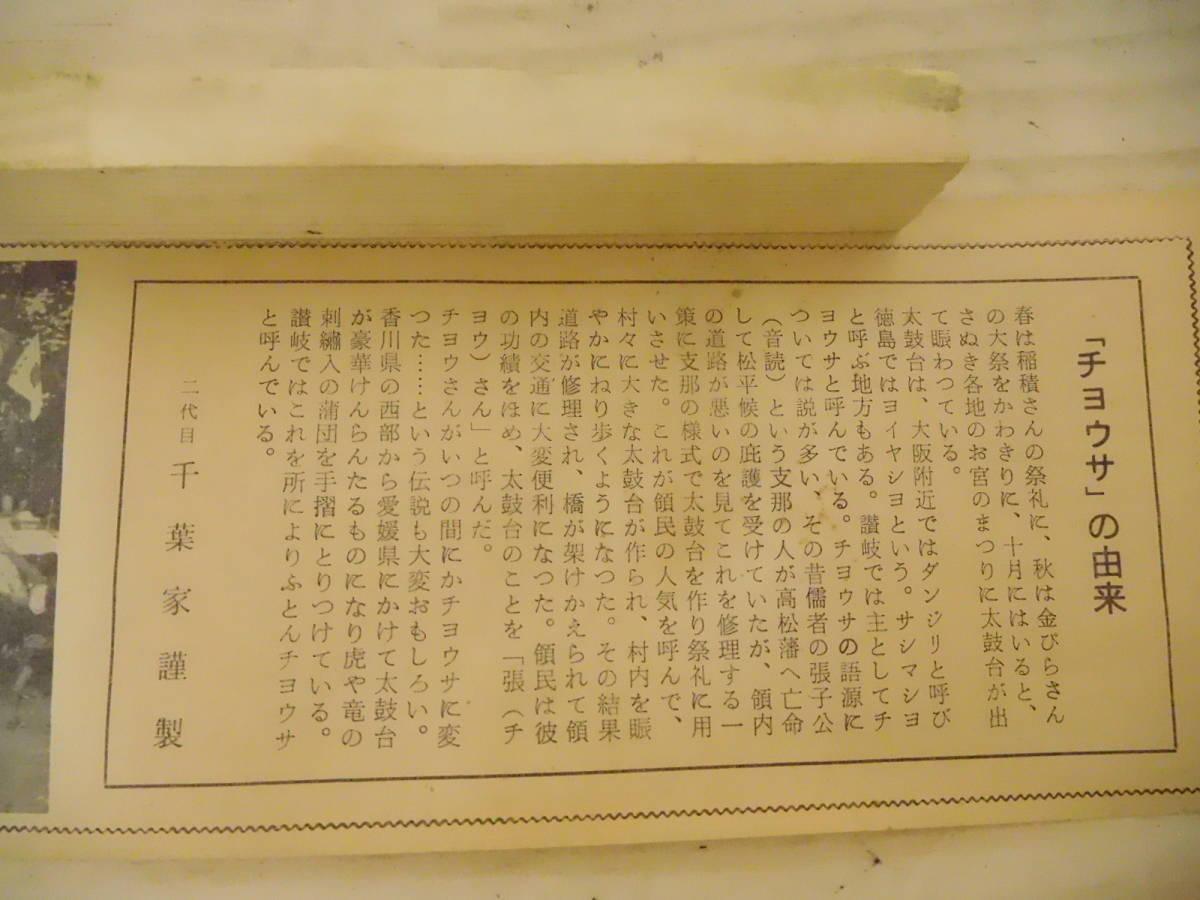 「チヨウサ」の由来
春は稲積さんの祭礼に、秋は金びらさん
の大祭をかわきりに、十月にはいると、
さぬき各地のお宮のまつりに太鼓台が出
て賑わつている。
太鼓台は、大阪附近ではダンジリと呼び
徳島ではヨイヤシヨという。サシマシヨ
と呼ぶ地方もある。讃岐では主としてチ
ヨウサと呼んでいる。チヨウサの語源に
ついては説が多い、その昔儒者の張子公
（音読）という支那の人が高松藩へ亡命
して松平候の庇護を受けていたが、領内
の道路が悪いのを見てこれを修理する一
策に支那の様式で太鼓台を作り祭礼に用
いさせた。これが領民の人気を呼んで、
村々に大きな太鼓台が作られ、村内を賑
やかにねり歩くようになつた。その結果
道路が修理され、橋が架けかえられて領
内の交通に大変便利になつた。領民は彼
の功績をほめ、太鼓台のことを「張（チ
ヨウ）さん」と呼んだ。
チヨウさんがいつの間にかチヨウサに変
つた……という伝説も大変おもしろい。
香川県の西部から愛媛県にかけて太鼓台
が豪華けんらんたるものになり虎や竜の
刺繡入の蒲団を手摺にとりつけている。
讃岐ではこれを所によりふとんチヨウサ
と呼んでいる。
二代目 千葉家謹製